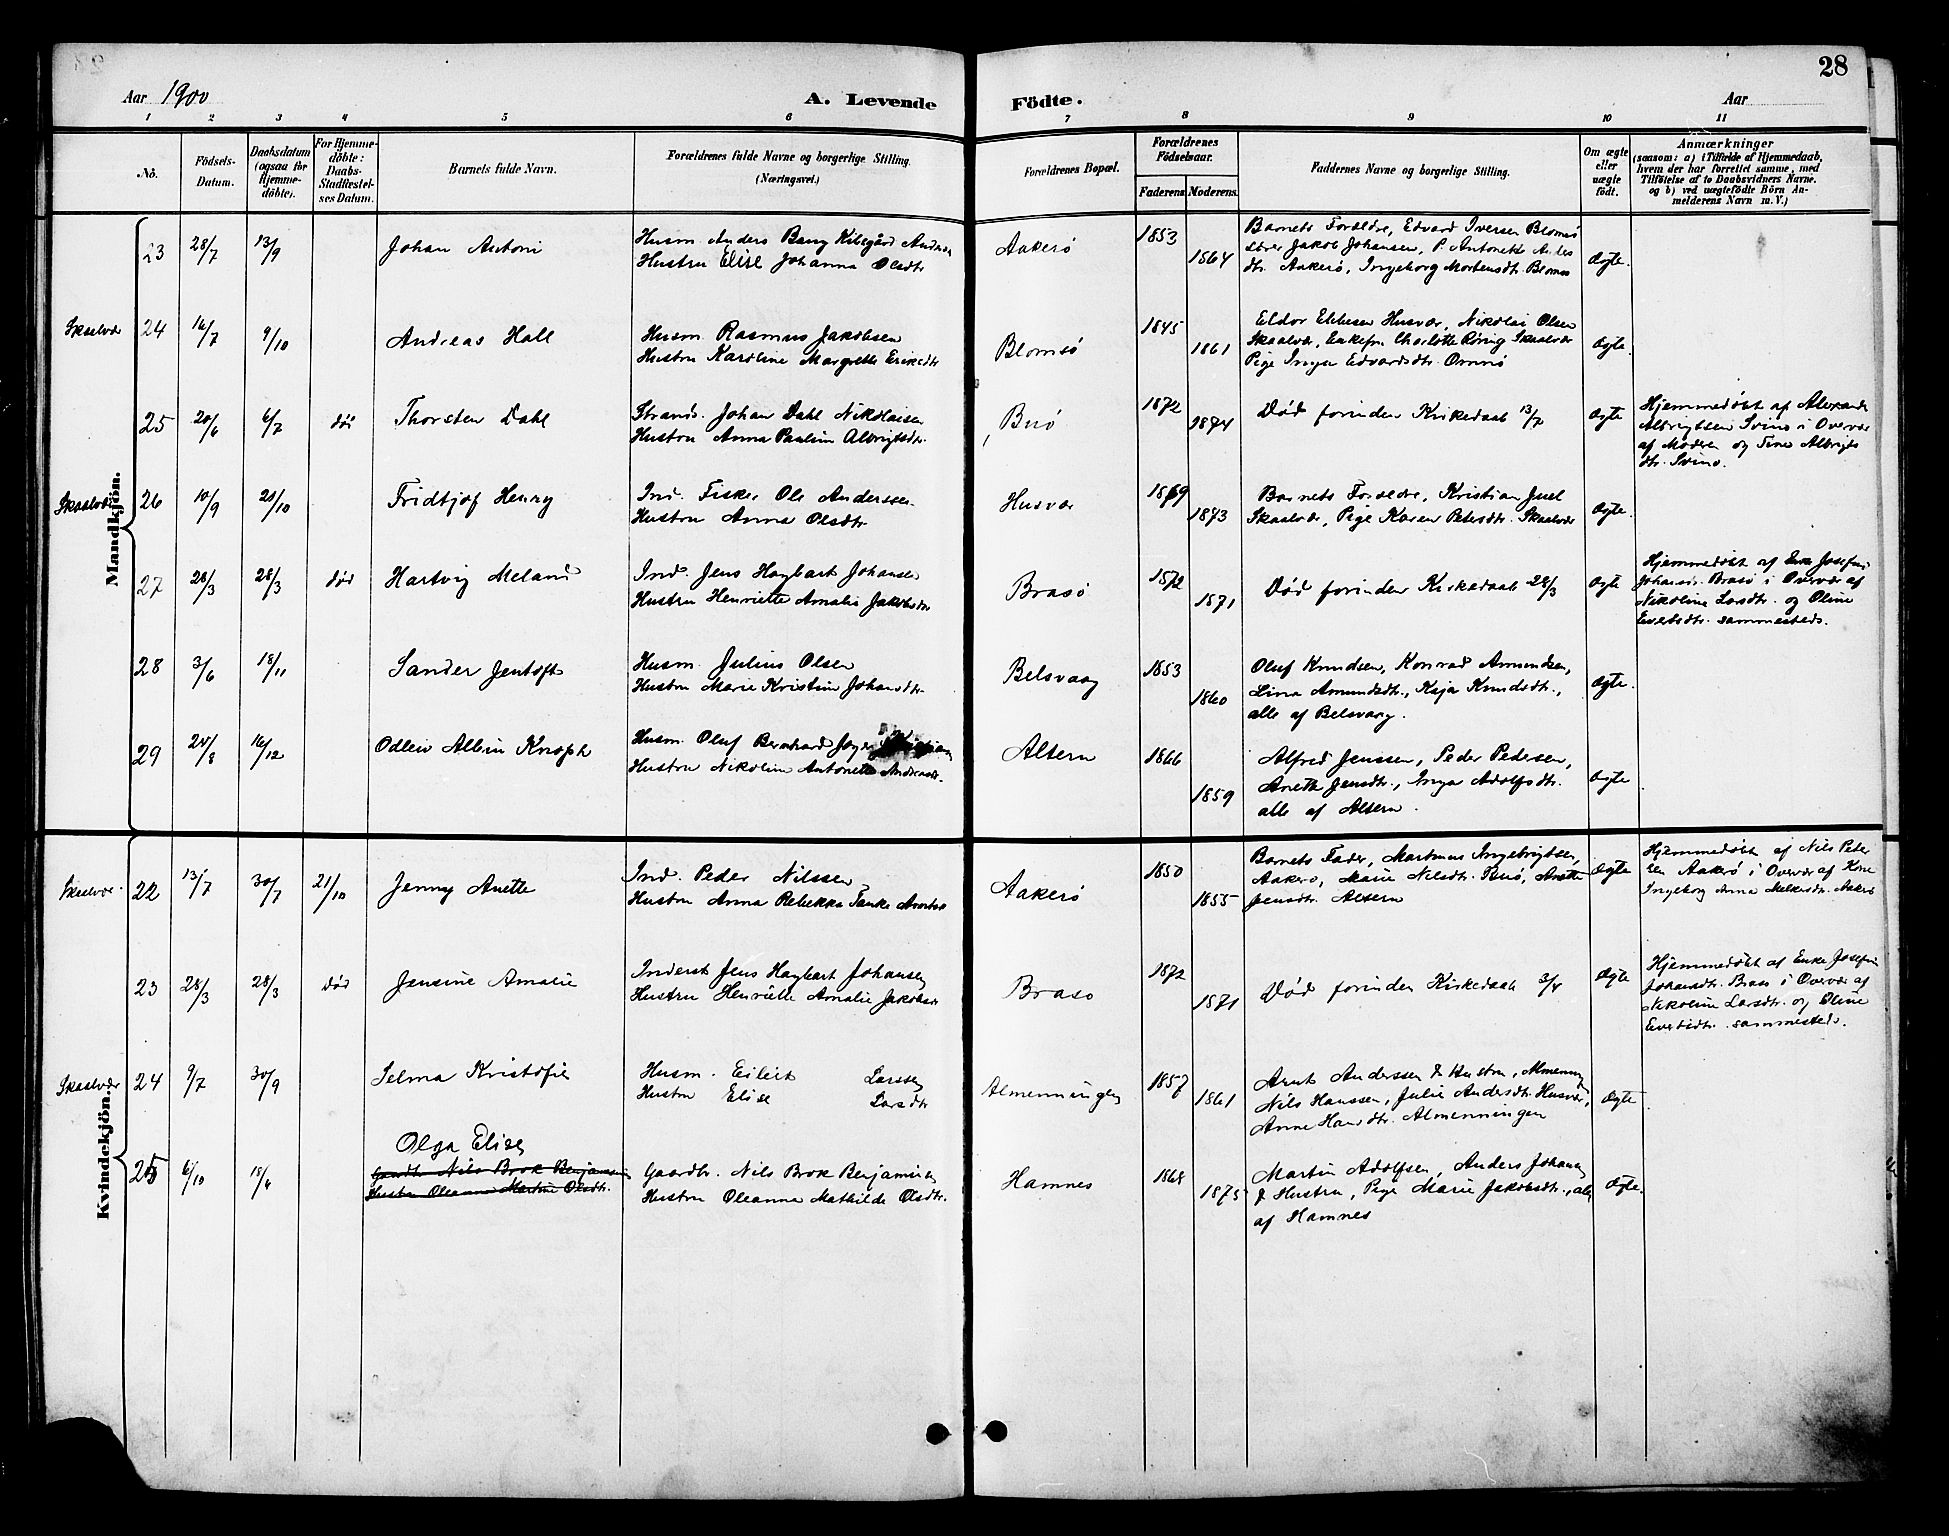 28
Aar 1900
A. Levende Födte.
Aar
1 2 3 4 5 6 7 8 9 10 11
No.
Födsels-
Datum.
Daabsdatum
(ogsaa for
Hjemme-
döbte).
For Hjemme-
döbte:
Daabs-
Stadfæstel-
ses Datum.
Barnets fulde Navn.
Forældrenes fulde Navne og borgerlige Stilling.
(Næringsvei.)
Forældrenes Bopæl.
Forældrenes
Födselsaar.
Faderens. Moderens.
Faddernes Navne og borgerlige Stilling.
Om ægte
eller
uægte
födt.
Anmærkninger
(saasom: a) i Tilfælde af Hjemmedaab,
hvem der har forrettet samme, med
Tilföielse af to Daabsvidners Navne.
og b) ved uægtefödte Börn An-
melderens Navn m. V.)
Mandkjön.
23 28/7 13/9 Johan Antoni
Husm. Anders Bang Kibsgård
Hustru Elise Johanna Olsdtr
Aakerø 1853 1864
Barnets Forældre, Edvard Iversen Blomsø
Jakob Johansen, P. Antonette
dtr. Aakerø, Ingeborg Mortensdtr. Blomsø
Ægte.
Skaalvær 24 16/7 9/10 Andreas Hall
Husm. Rasmus Jakobsen
Hustru Karoline Margrethe Eriksdtr
Blomsø 1845 1861
Eldor Ebbesen Husvær, Nikolai Olsen
Skaalvær, Enkefru Charlotte Röring Skaalvær
Pige Inga Edvardsdtr.
Ægte.
25 20/6 6/7 död Thorsten Dahl
Strands. Johan Dahl Nikolaisen
Hustru Anna Pauline Albrigtsdtr.
Buø 1872 1874
Död forinden Kirkedaab 13/7
Ægte
Hjemmedöbt af
Albrigtsen Svinø i Overvær
af Moderen og Tine Albrigts
dtr. Svinø.
Skaalvær 26 10/9 21/10 Fridtjof Henry
Ind. Fisker Ole Anderssen
Hustru Anna Olsdtr
Husvær 1869 1873
Barnets Forældre, Kristian Juel
Skaalvær, Pige Karen Petersdtr. Skaalvær
Ægte.
27 28/3 28/3 død Hartvig Meland
Ind. Jens Hagbart Johansen
Hustru Henriette Amalie Jakobsdtr
Brasø 1872 1871
Död forinden Kirkedaab 28/3
Ægte
Hjemmedöbt af Enke Josefine
Johansdtr. Brasø i Overvær af
Nikoline Larsdtr. og Oline
Evertsdtr. sammesteds.
28 3/6 18/11 Sander Jentoft
Husm. Julius Olsen
Hustru Marie Kristine Johansdtr.
Belsvaag 1853 1860
Oluf Knudsen, Konrad Amundsen,
Lina Amundsdtr., Kaja Knudsdtr.,
alle af Belsvaag.
Ægte.
29 20/8 16/12 Odleiv Albin Knoph
Husm. Oluf Bernhard
Hustru Nikoline Antonette Andreasdtr.
Altern 1866 1859
Alfred Jenssen, Peder Pedersen,
Anette Jensdtr., Inga Adolfsdtr.
alle af Altern.
Ægte
Kvindekjön.
Skaalvær 22 13/7 30/7 21/10 Jenny Anette
Ind. Peder Nilssen
Hustru Anna Rebekka Tanke
Aakerø 1850 1855
Barnets Fader, Martinus Ingebrigtsen,
Aakerø, Marie Nilsdtr. Buø, Anette
Jensdtr. Altern
Ægte
Hjemmedöbt af Nils Peter
sen Aakerø i Overvær af Kone
Ingeborg Anna Melkersdtr. Aakerø
23 28/3 28/3 Död Jensine Amalie
Inderst Jens Hagbart Johansen
Hustru Henriette Amalie Jakobsdtr
Brasø 1872 1871
Död forinden Kirkedaab 3/4
Ægte
Hjemmedöbt af Enke Josefine
Johansdtr. Brasø i Overvær af
Nikoline Larsdtr. og Oline
Evertsdtr. sammesteds.
Skaalvær 24 9/7 30/9 Selma Kristofie
Husm. Eilert Larssen
Hustru Elise Larsdtr
Almenningen 1857 1861
Arnt Anderssen & Hustru, Almenning
Nils Hanssen, Julie Andersdtr. Husvær,
Anne Hansdtr. Almenningen
Ægte
25 6/10 18/6 Olga Elise
Gaardbr. Nils Brok Benjaminsen
Hustru Oleanna Martine Olsdtr.
Gaardbr. Nils Brok Benjaminsen
Hustru Oleanna Mathilde Olsdtr.
Hamnes 1868 1875
Martin Adolfsen, Anders Johansen
& Hustru, Pige Marie Jakobsdtr., alle
af Hamnes
Ægte.